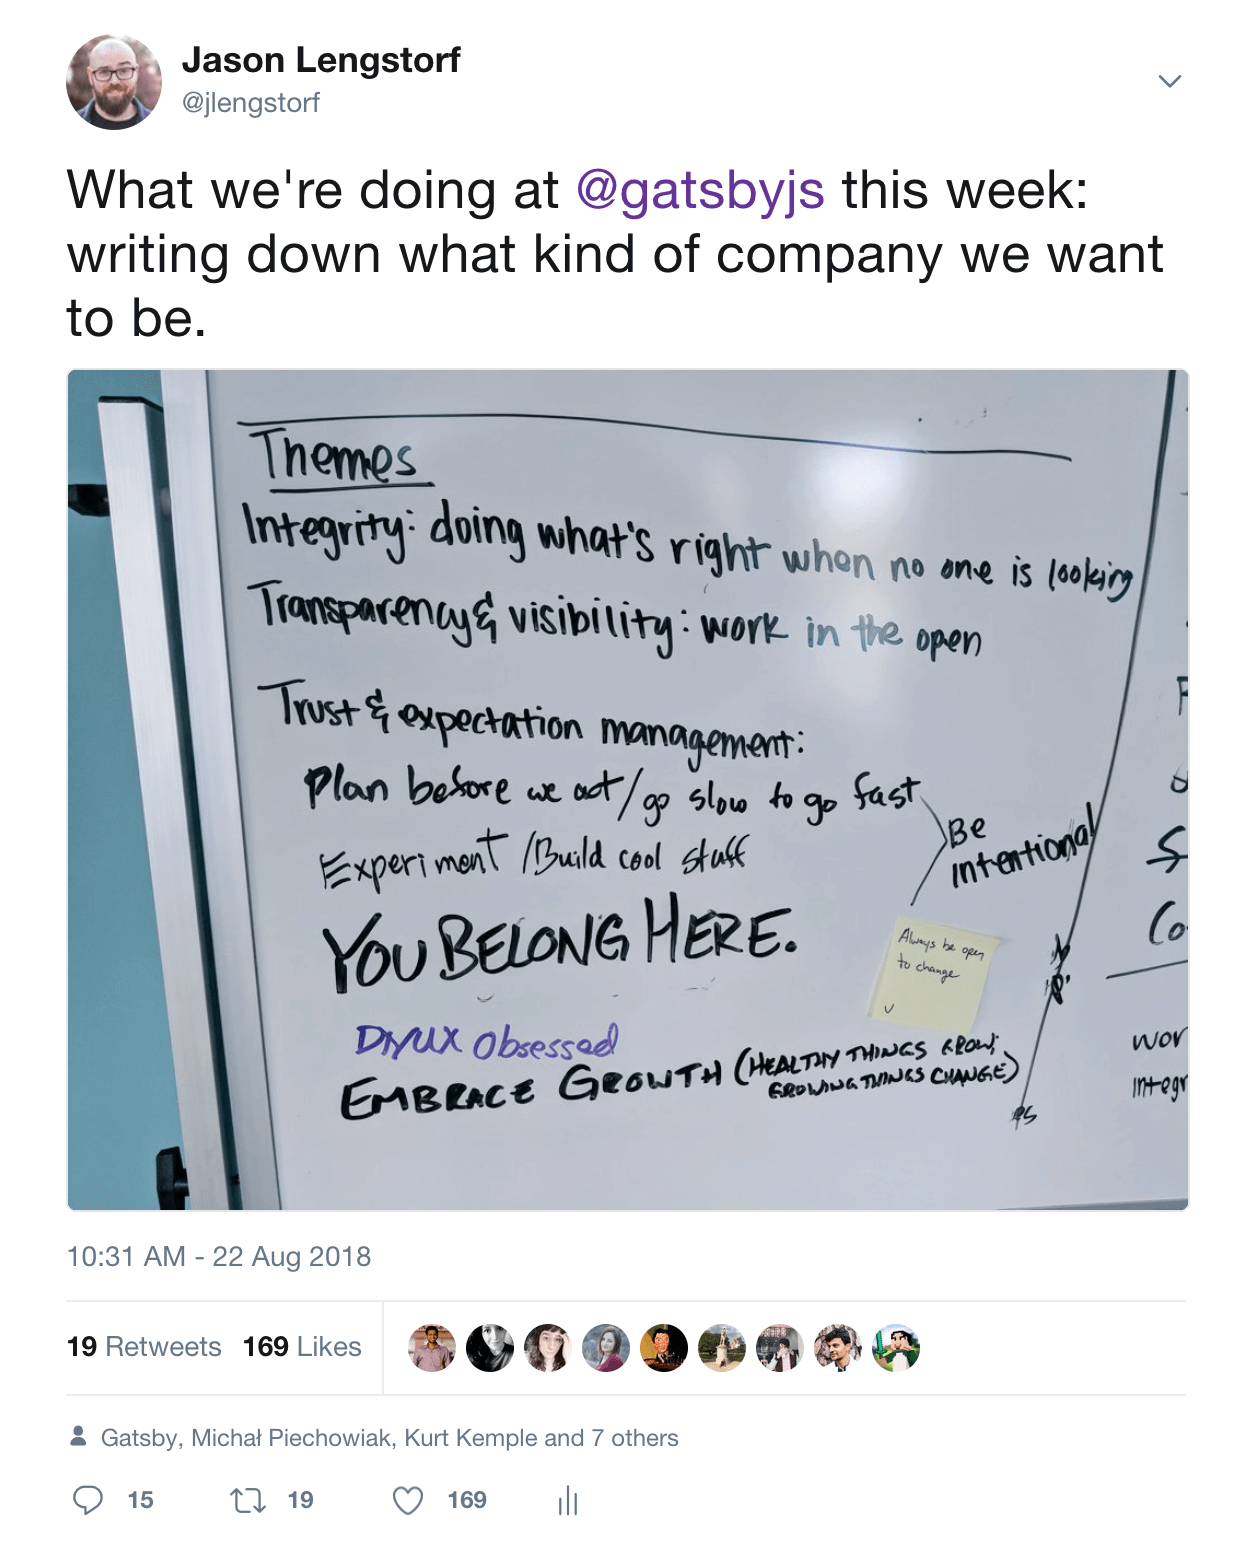 Jason Lengstorf
@jlengstorf
What we're doing at @gatsbyjs this week:
writing down what kind of company we want
to be.
Themes
Integrity: doing what's right when no one is looking
Transparency & visibility: work in the open
Trust & expectation management:
Plan before we act/go slow to go fast
Be
intentional
Experiment /Build cool stuff
YOU BELONG HERE.
Always be open
to change
DX/UX obsessed
EMBRACE GROWTH (HEALTHY THINGS GROW;
GROWING THINGS CHANGE)
Co
wor
integr
10:31 AM - 22 Aug 2018
19 Retweets 169 Likes
Gatsby, Michał Piechowiak, Kurt Kemple and 7 others
15 19 169